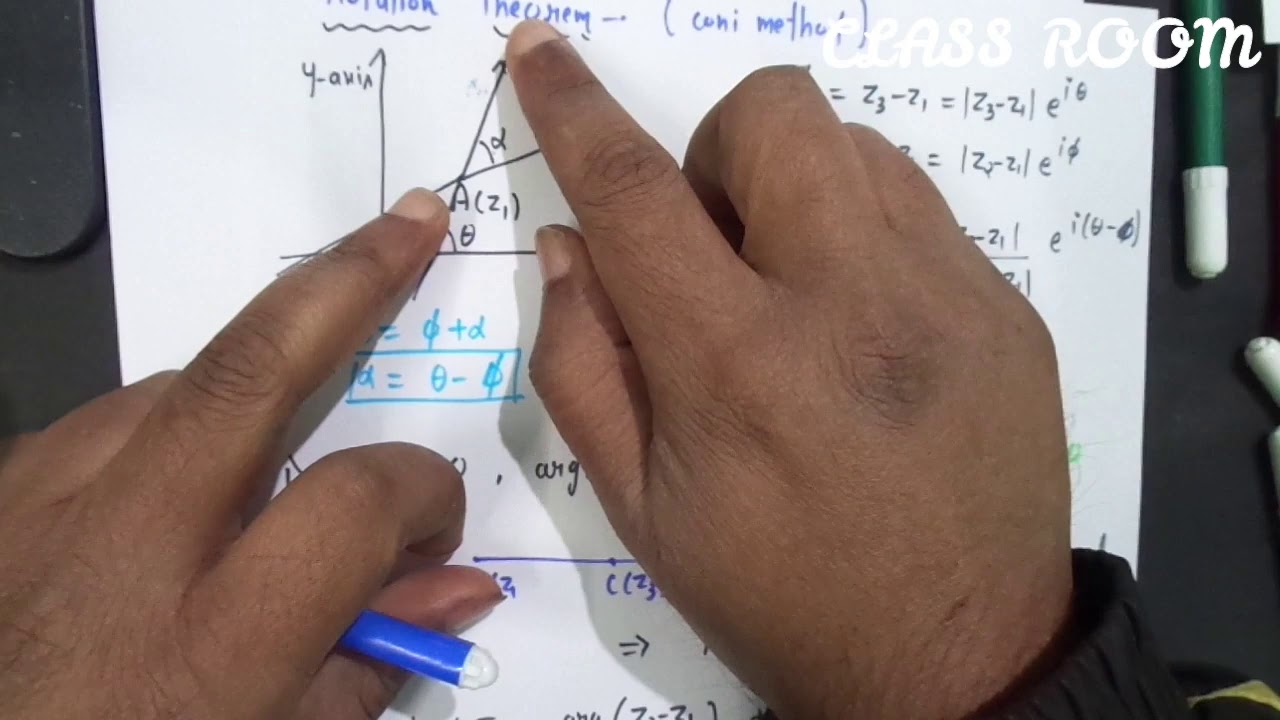 Rotation Theorem - (coni method)
CLASS ROOM
y-axis
= Z₃-Z₁ = |Z₃-Z₁| e^{iθ}
α
= |Z₂-Z₁| e^{iϕ}
A(Z₁)
θ
-Z₁| e^{i(θ-ϕ)}
Z₁|
= ϕ+α
α = θ-ϕ
, arg
Z₁ C(Z₃
⇒
= arg(Z₂-Z₁)